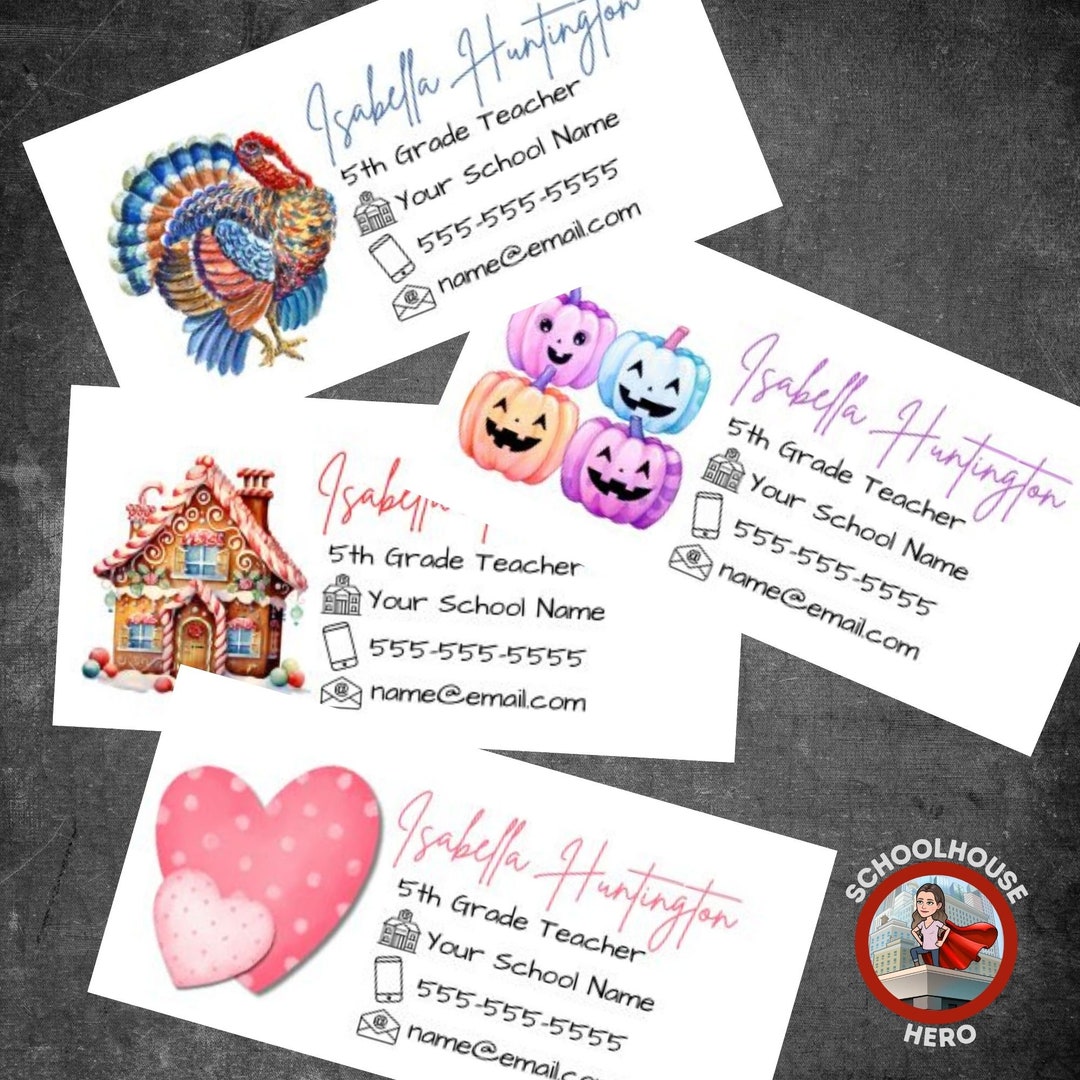 Isabella Huntington
5th Grade Teacher
Your School Name
555-555-5555
name@email.com
Isabella Huntington
5th Grade Teacher
Your School Name
555-555-5555
name@email.com
Isabella
5th Grade Teacher
Your School Name
555-555-5555
name@email.com
Isabella Huntington
5th Grade Teacher
Your School Name
555-555-5555
name@email.co
SCHOOLHOUSE
HERO